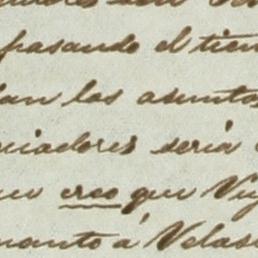 pasando el tiem
dan los asuntos
uiadores seria
creo que Vi
uanto á Velas